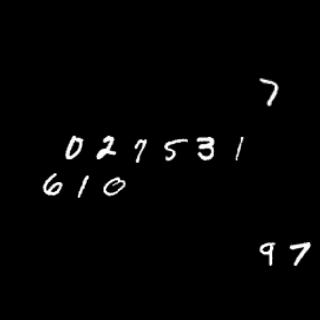 7
027531
610
97